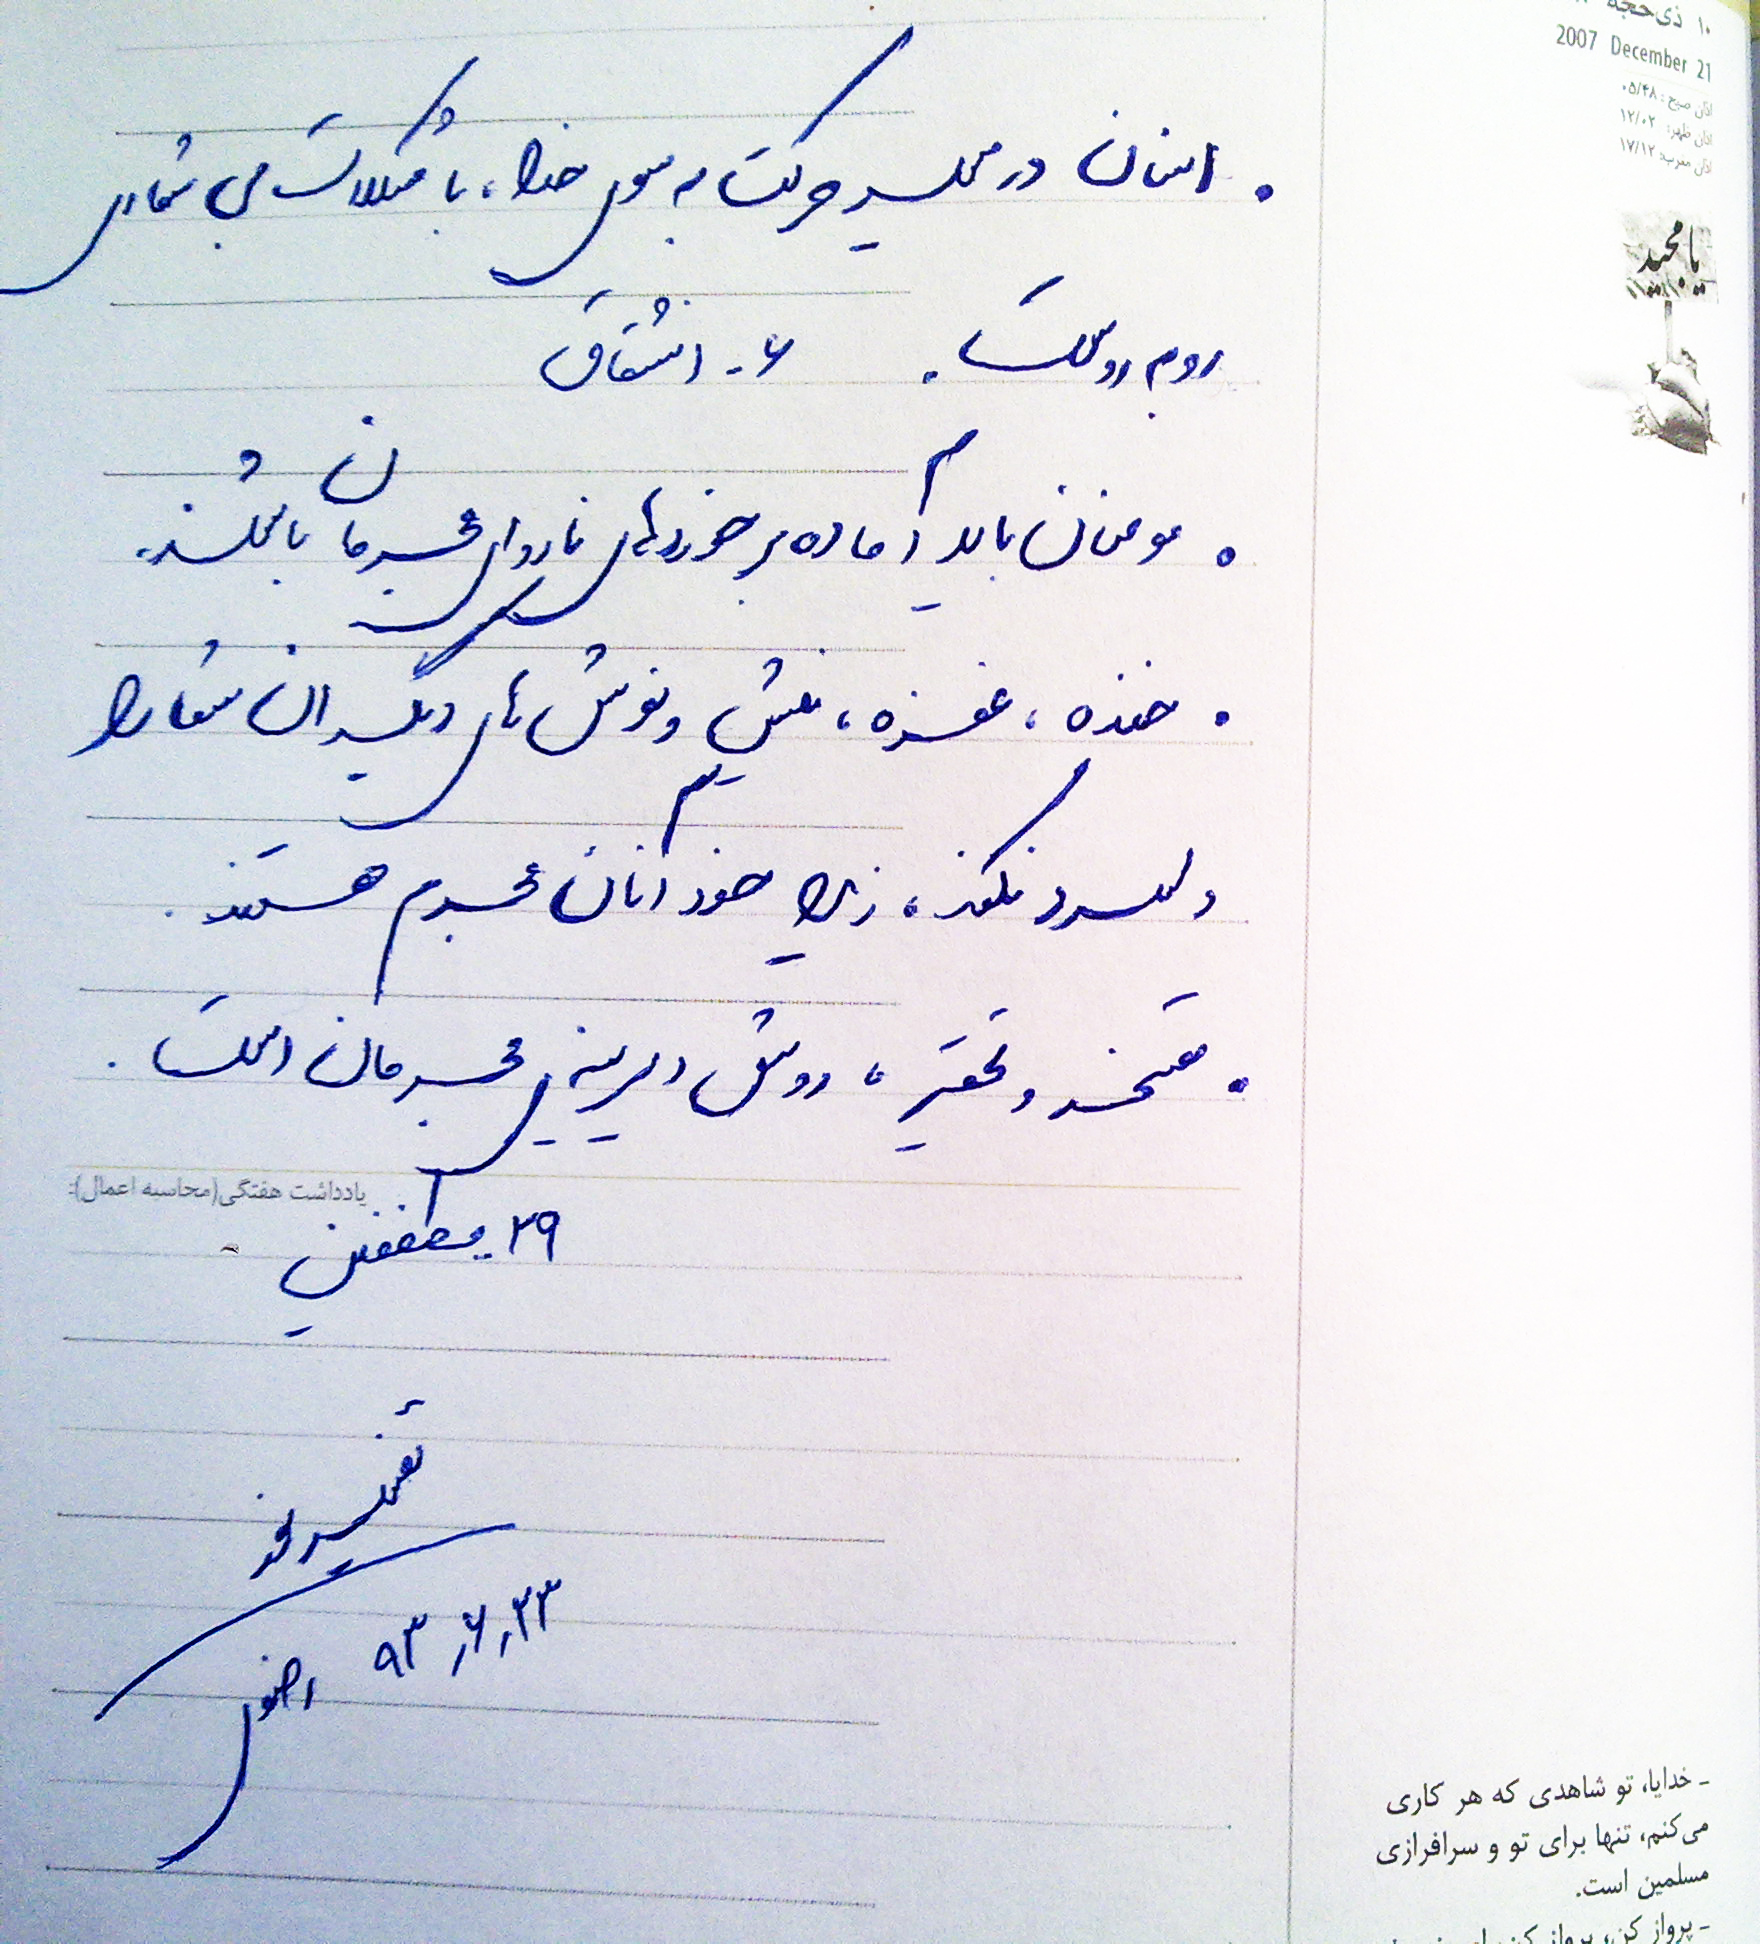 ۱۰ ذی‌حجه
2007 December 21
اذان صبح: ۰۵/۴۸
اذان ظهر: ۱۲/۰۲
اذان مغرب: ۱۷/۱۲
یا مجید
• انسان در مسیر حرکت به سوی خدا، با مشکلات بی شماری
روبه روست. ۶- انشقاق
• مومنان باید آماده برخوردهای ناروای مجرمان باشند.
• خنده، غمزه، نیش و نوش های دیگران شما را
دلسرد نکند، زیرا خود آنان مجرم هستند.
• تمسخر و تحقیر، روش دیرینه ی مجرمان است.
یادداشت هفتگی(محاسبه اعمال):
۲۹ مطففین
تفسیر نور
۹۳٫۶٫۲۳ رضوی
- خدایا، تو شاهدی که هر کاری
می‌کنم، تنها برای تو و سرافرازی
مسلمین است.
- پرواز کن، پرواز کن